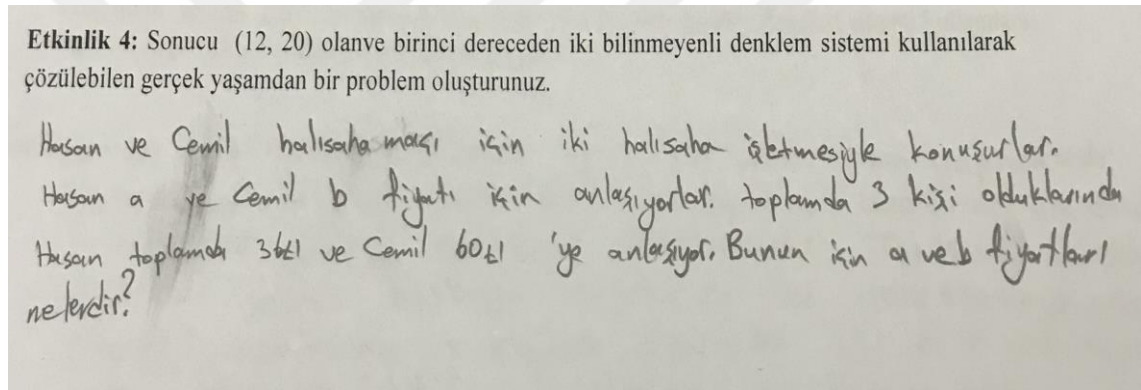 Etkinlik 4: Sonucu (12, 20) olanve birinci dereceden iki bilinmeyenli denklem sistemi kullanılarak
çözülebilen gerçek yaşamdan bir problem oluşturunuz.
Hasan ve Cemil halısaha maçı için iki halısaha işletmesiyle konuşurlar.
Hasan a ve Cemil b fiyatı için anlaşıyorlar. toplamda 3 kişi olduklarında
Hasan toplamda 36tl ve Cemil 60tl 'ye anlaşıyor. Bunun için a ve b fiyatları
nelerdir?